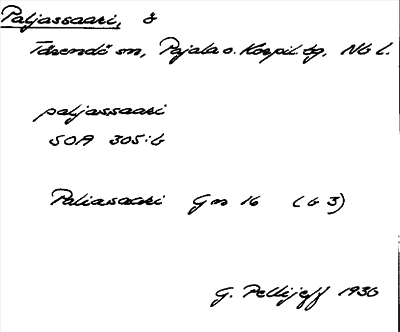 Paljassaari, ö
Tärendö sn, Pajala o. Korpil. tg, Nb l.
paljassaari
SOA 305:6
Paliasaari Gm 16 (b 3)
G. Pellijeff 1936